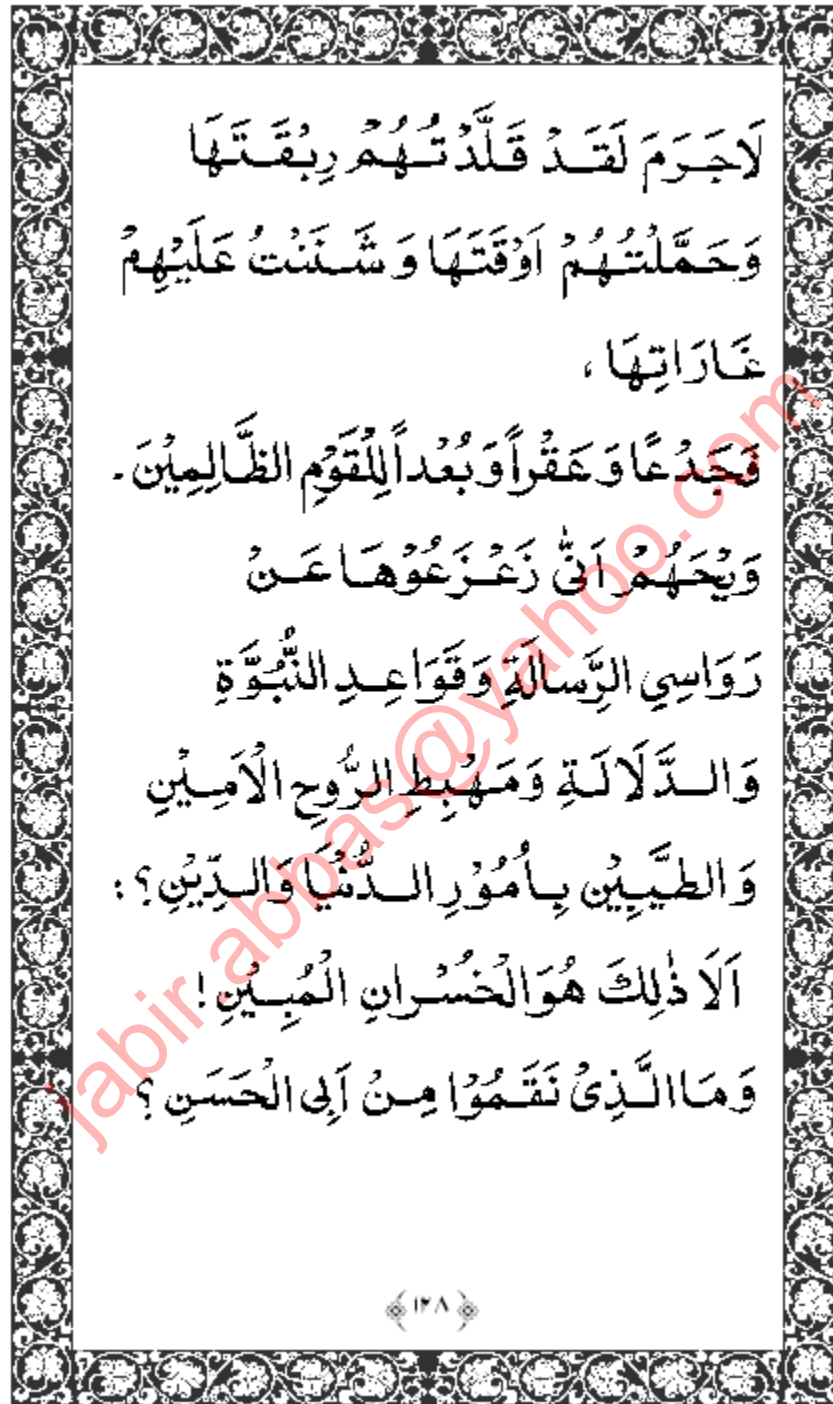 لَاجَرَمَ لَقَدْ قَلَّدْتُهُمْ رِبْقَتَهَا
وَحَمَّلْتُهُمْ اَوْقَتَهَا وَ شَنَنْتُ عَلَيْهِمْ
غَارَاتِهَا ،
فَجَدْعًا وَ عَقْراً وَ بُعْداً لِلْقَوْمِ الظَّالِمِيْنَ .
وَيْحَهُمْ اَنّٰى زَعْزَعُوْهَا عَنْ
رَوَاسِي الرِّسالَةِ وَ قَوَاعِدِ النُّبُوَّةِ
وَالدَّلَالَةِ وَمَهْبِطِ الرُّوحِ الْاَمِيْنِ
وَ الطيَّبِيْن بِأُمُوْرِ الدُّنْيَا وَالدِّيْنِ؟ :
اَلَا ذٰلِكَ هُوَ الْخُسْرانِ الْمُبِيْنِ !
وَمَا الَّذِىْ نَقَمُوْا مِنْ اَبِى الْحَسَنِ ؟
﴿١٢٨﴾
jabir.abbas@yahoo.com